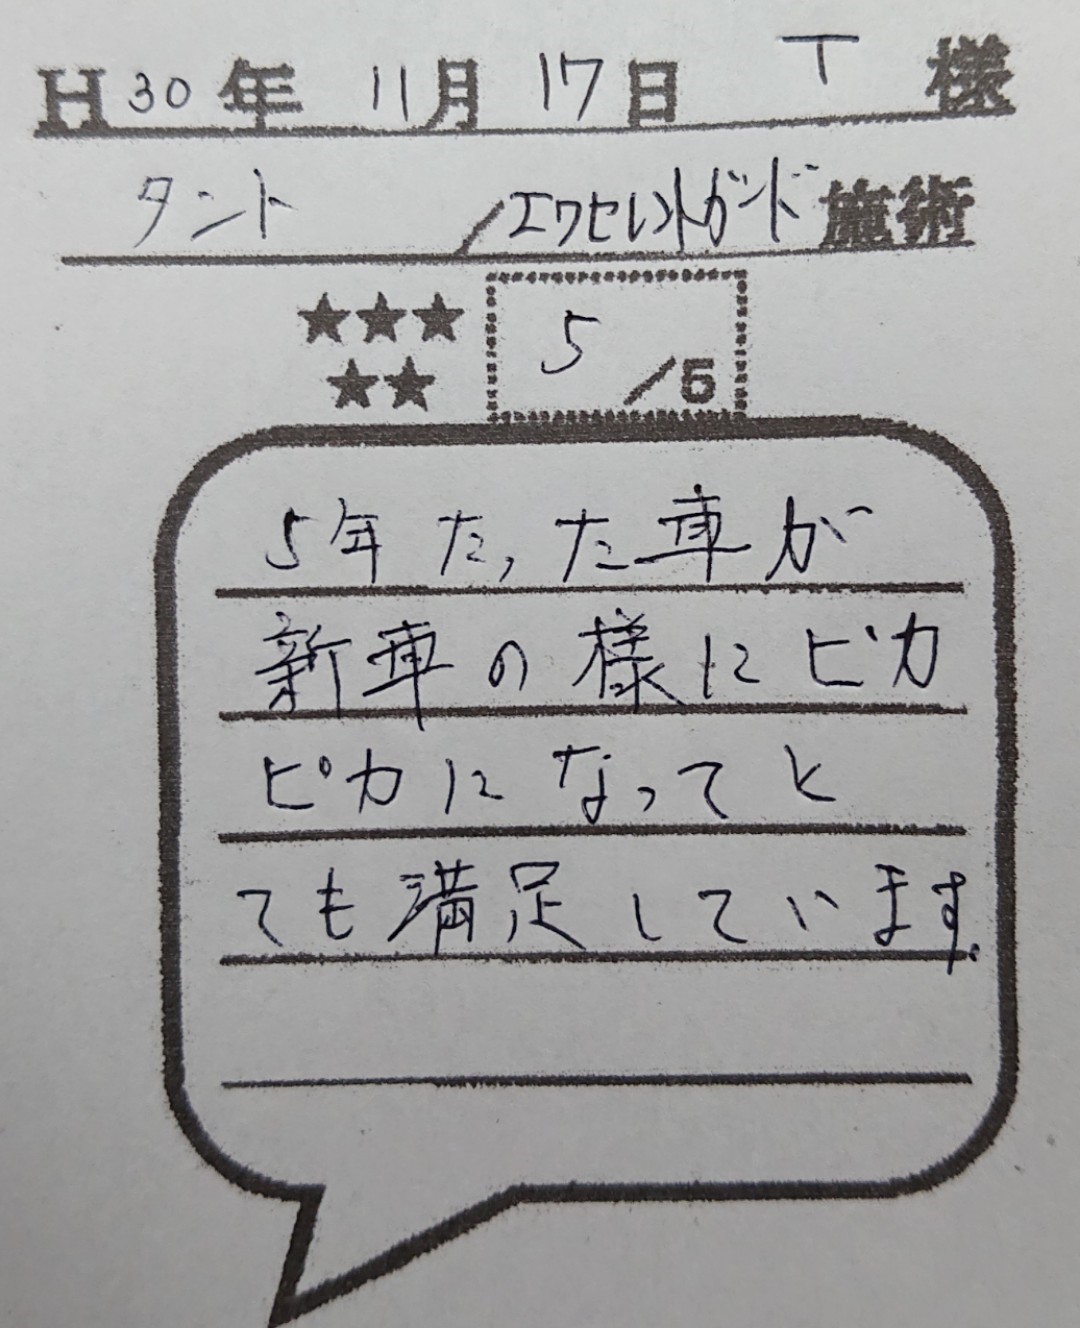 H30年 11月 17日 T 様
タント / エクセレントガード 施術
★★★
★★
5 /5
5年たった車が
新車の様にピカ
ピカになってと
ても満足しています。